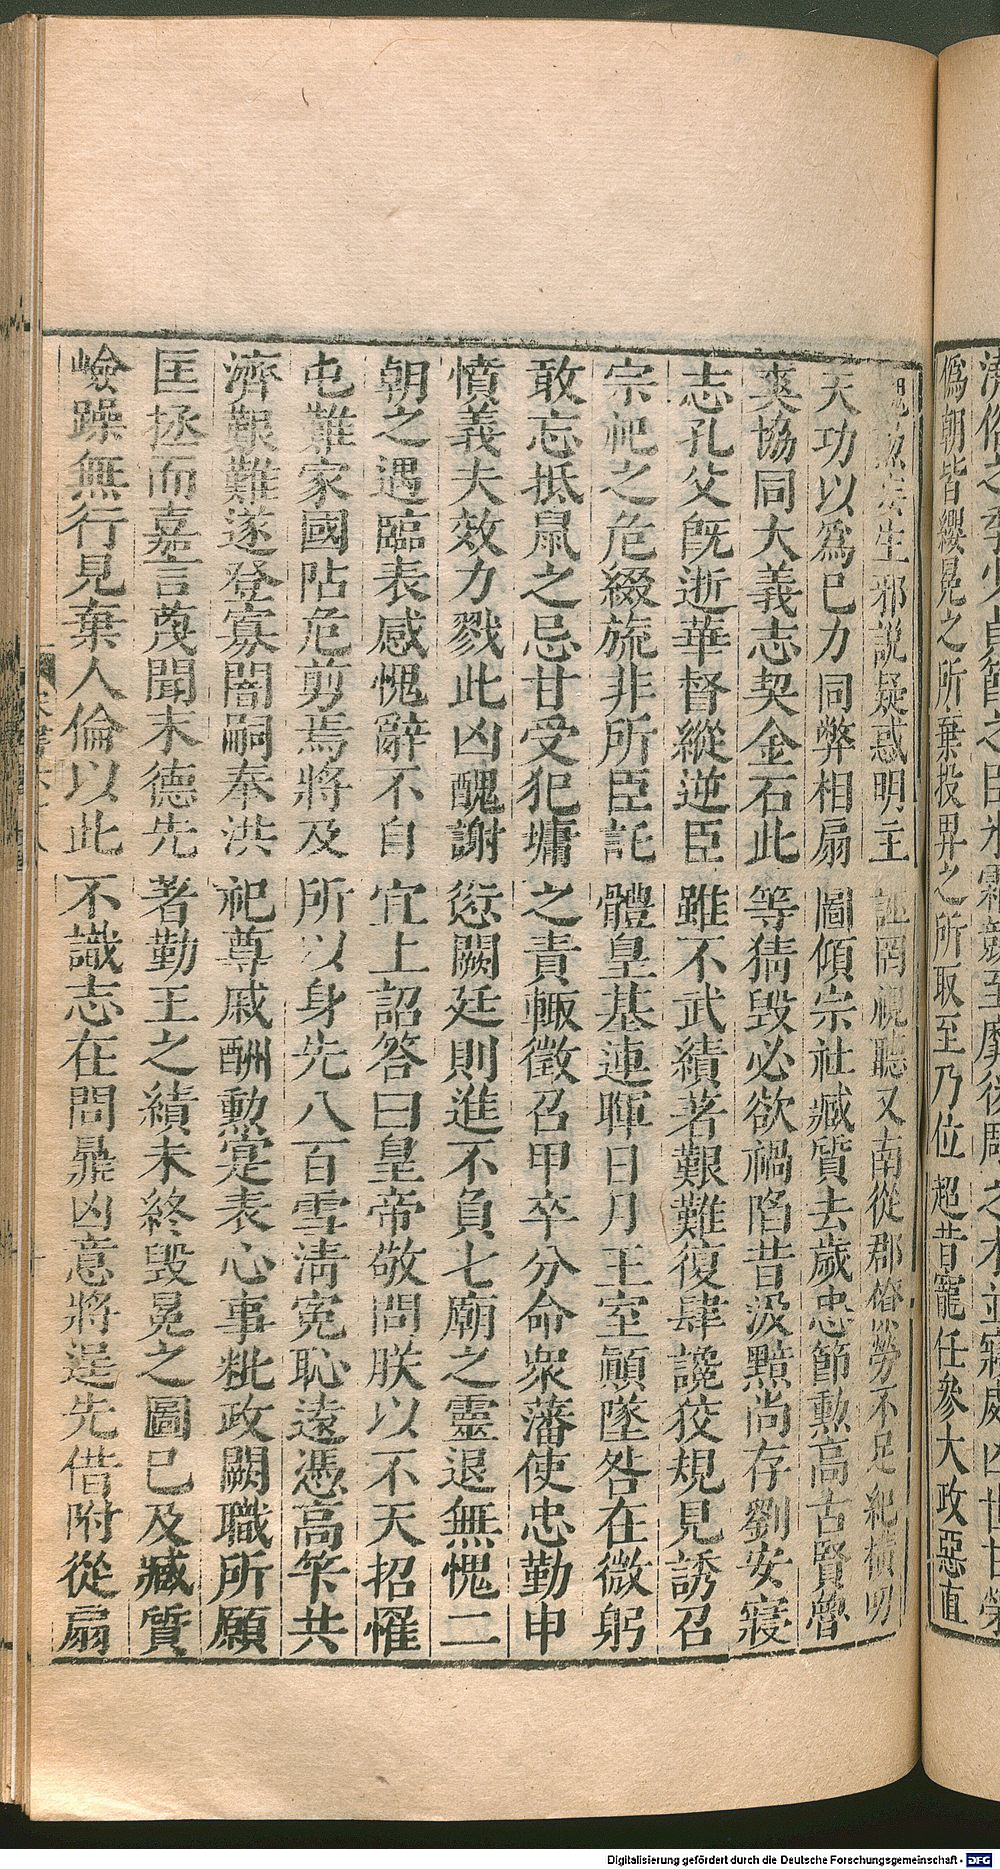 僞朝皆纓冕之所棄投畀之所取至乃位超昔寵任參大政惡直
醜正生邪說疑惑明主誣罔視聽又南從郡僚勞不足紀橫叨
天功以爲已力同弊相扇圖傾宗社臧質去歲忠節勳高古賢魯
爽協同大義志契金石此等猜毀必欲禍陷昔汲黯尚存劉安寢
志孔父旣逝華督縱逆臣雖不武績著艱難復肆讒狡規見誘召
宗祀之危綴旒非所臣託體皇基連暉日月王室顚墜咎在微躬
敢忘抵鼠之忌甘受犯墉之責輙徵召甲卒分命衆藩使忠勤申
憤義夫效力戮此凶醜謝愆闕廷則進不負七廟之靈退無愧二
朝之遇臨表感愧辭不自宣上詔荅曰皇帝敬問朕以不天招罹
屯難家國阽危剪焉將及所以身先八百雪淸寃恥遠憑高筭共
濟艱難遂登寡闇嗣奉洪祀尊戚酬勳寔表心事粃政闕職所願
匡拯而嘉言蔑聞末德先著勤王之績未終毀冕之圖已及臧質
嶮躁無行見棄人倫以此不識志在問鼎凶意將逞先借附從扇